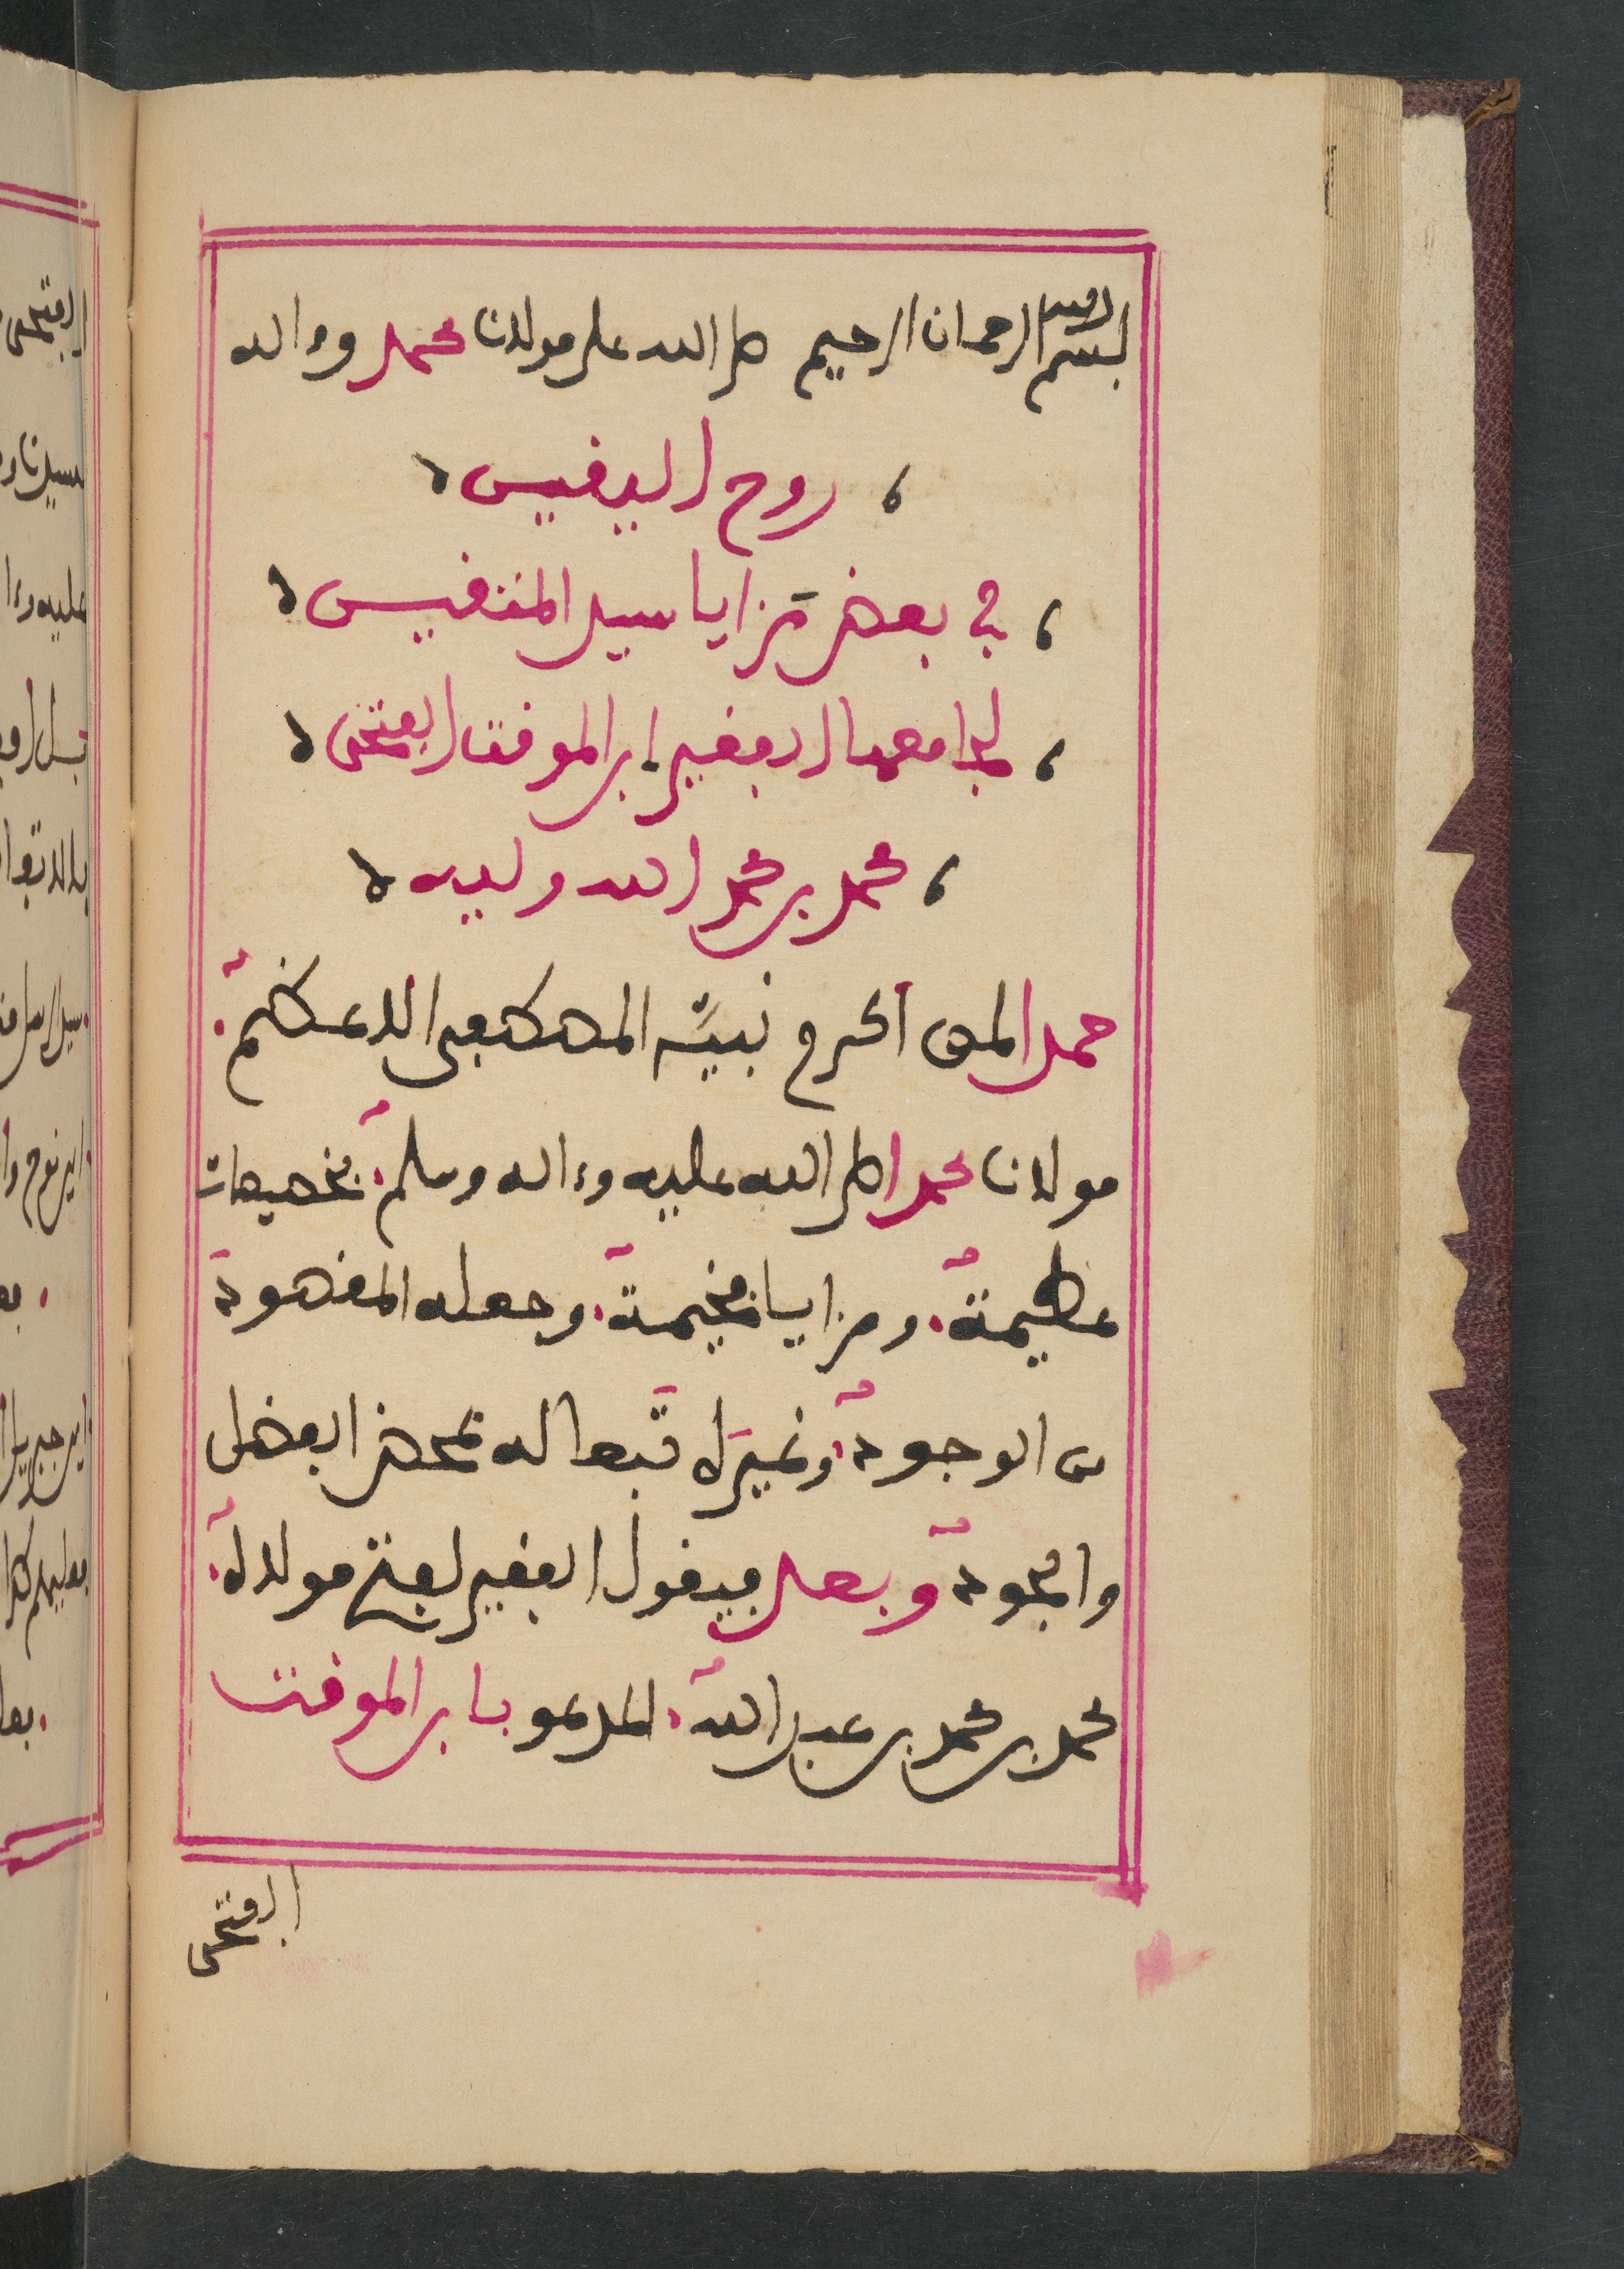 بسم الله الرحمان الرحيم صلى الله على مولانا محمد وءاله
روح اليقين
في بعض مزايا سيد المتقين
لجامعها الفقير ابن الموقت الفتحى
محمد بن محمد الله وليه
حمدا لمن أكرم نبيَّه المصطفى الاعظم
مولانا محمدا صلى الله عليه وءاله وسلم. بخصيصات
عظيمة. ومزايا فخيمة. وجعله المقصود
من الوجود. وغيره تبعا له بمحض الفضل
والجود وبعد فيقول الفقير لعفو مولاه.
محمد بن محمد بن عبد الله. المدعو بابن الموقت
الفتحى